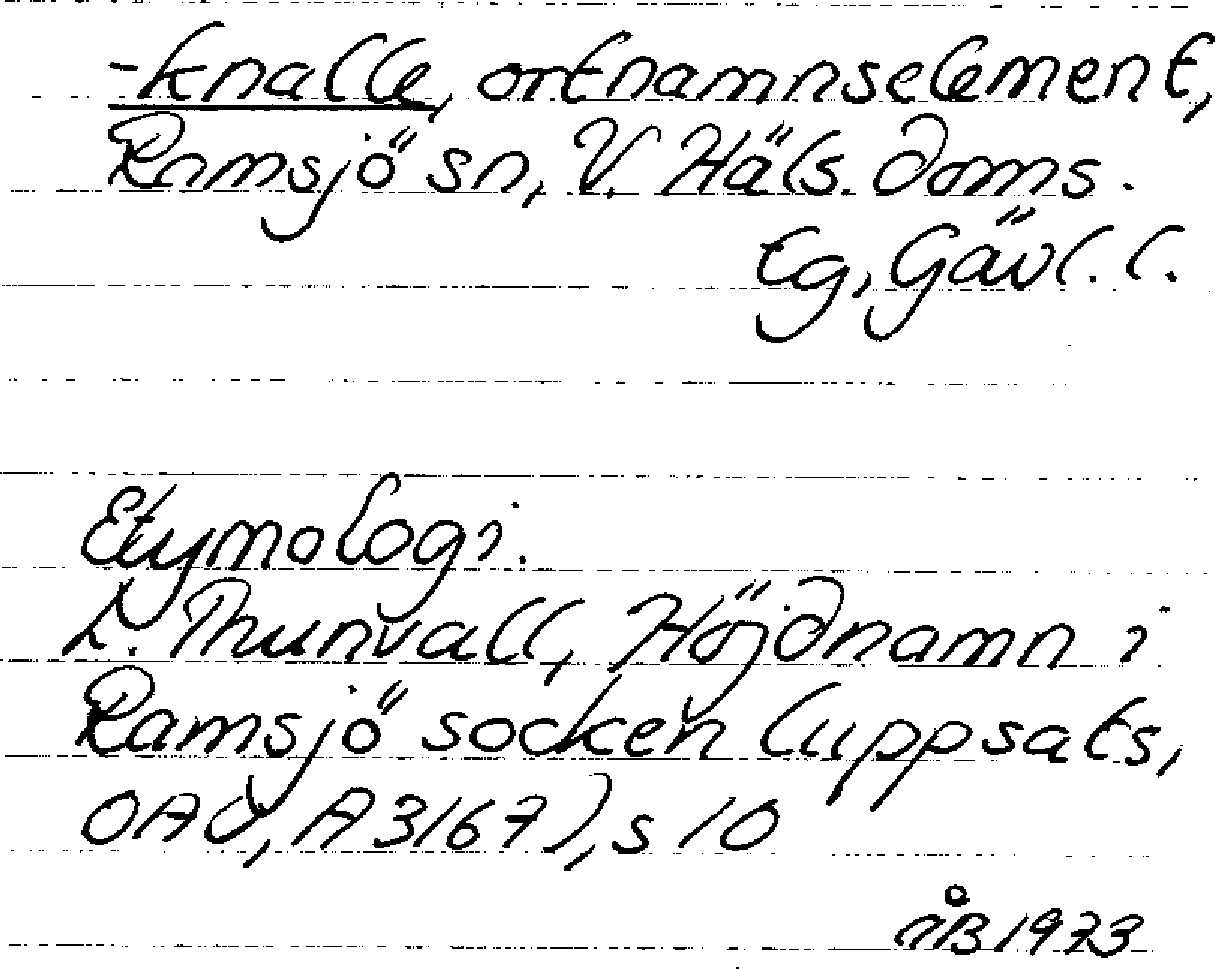 -knalle, ortnamnselement,
Ramsjö sn, V. Häls. doms.
tg, Gävl. l.
Etymologi.
L. Thunvall, Höjdnamn i
Ramsjö socken (uppsats,
OAU, A3167), s 10
ÅB 1973